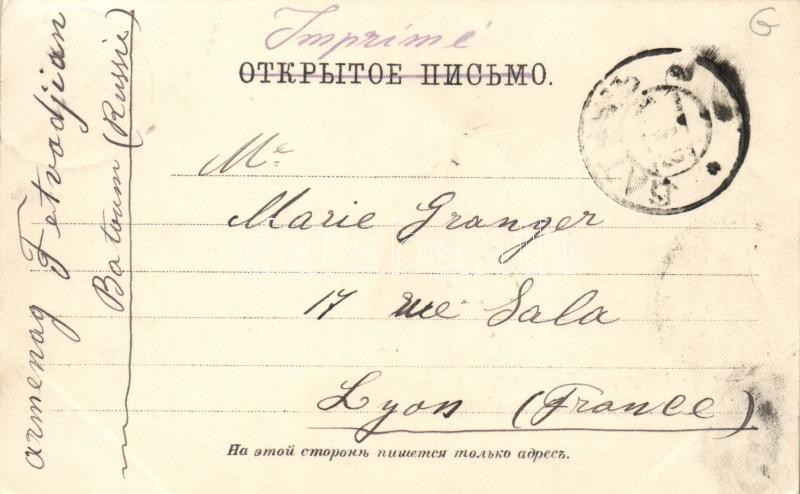 Imprimé
ОТКРЫТОЕ ПИСЬМО.
Me
Marie Granger
17 rue Sala
Lyon (France)
На этой сторонѣ пишется только адресъ.
Armenag Fetvadjian
Batoum (Russie)
G